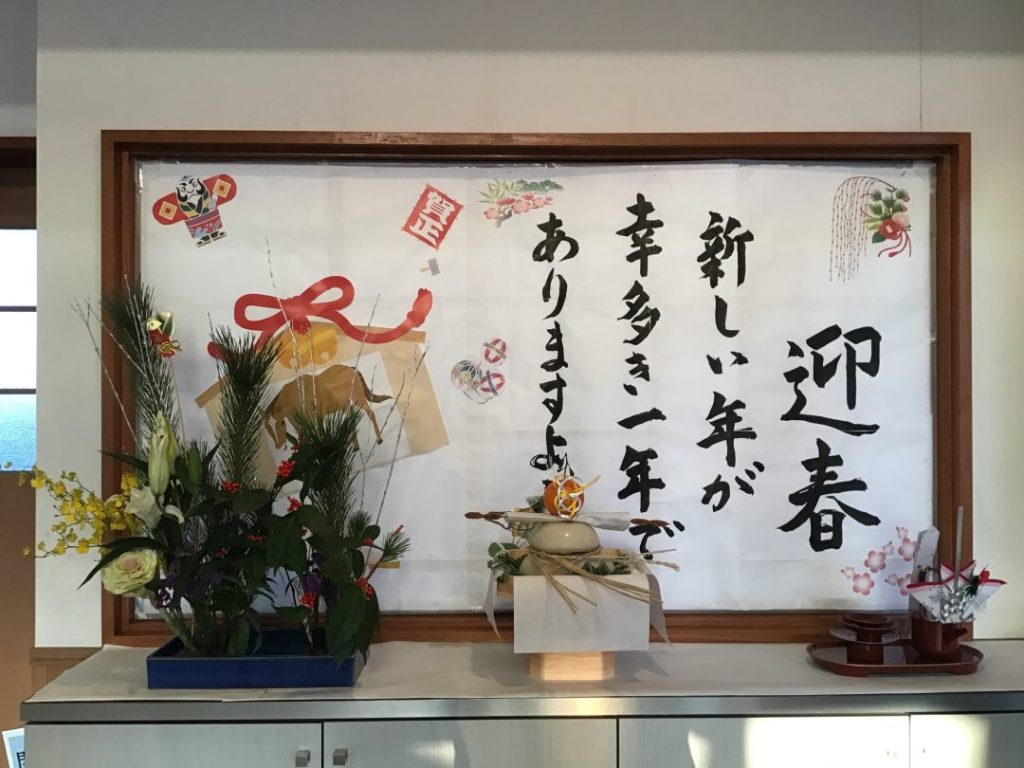 迎春
新しい年が
幸多き一年で
ありますよ
賀正